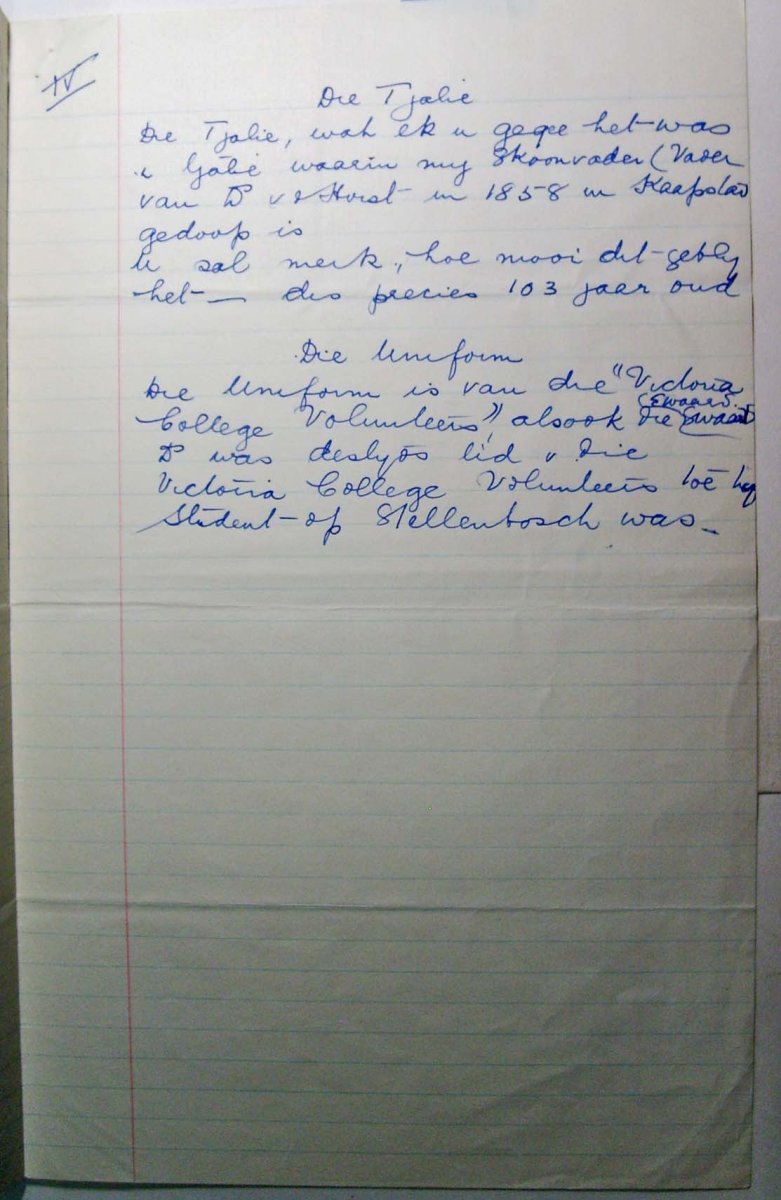 IV
Die Tjalie
Die Tjalie, wat ek u gegee het was
'n Tjalie waarin my Skoonvader (Vader
van D v d Horst in 1858 in Kaapstad
gedoop is
U sal merk, hoe mooi dit gebly
het — dis precies 103 jaar oud
Die Uniform
Die Uniform is van die "Victoria
College Volunteers", alsook die (Swaard)
D was destyds lid v die
Victoria College Volunteers toe hy
Student op Stellenbosch was —